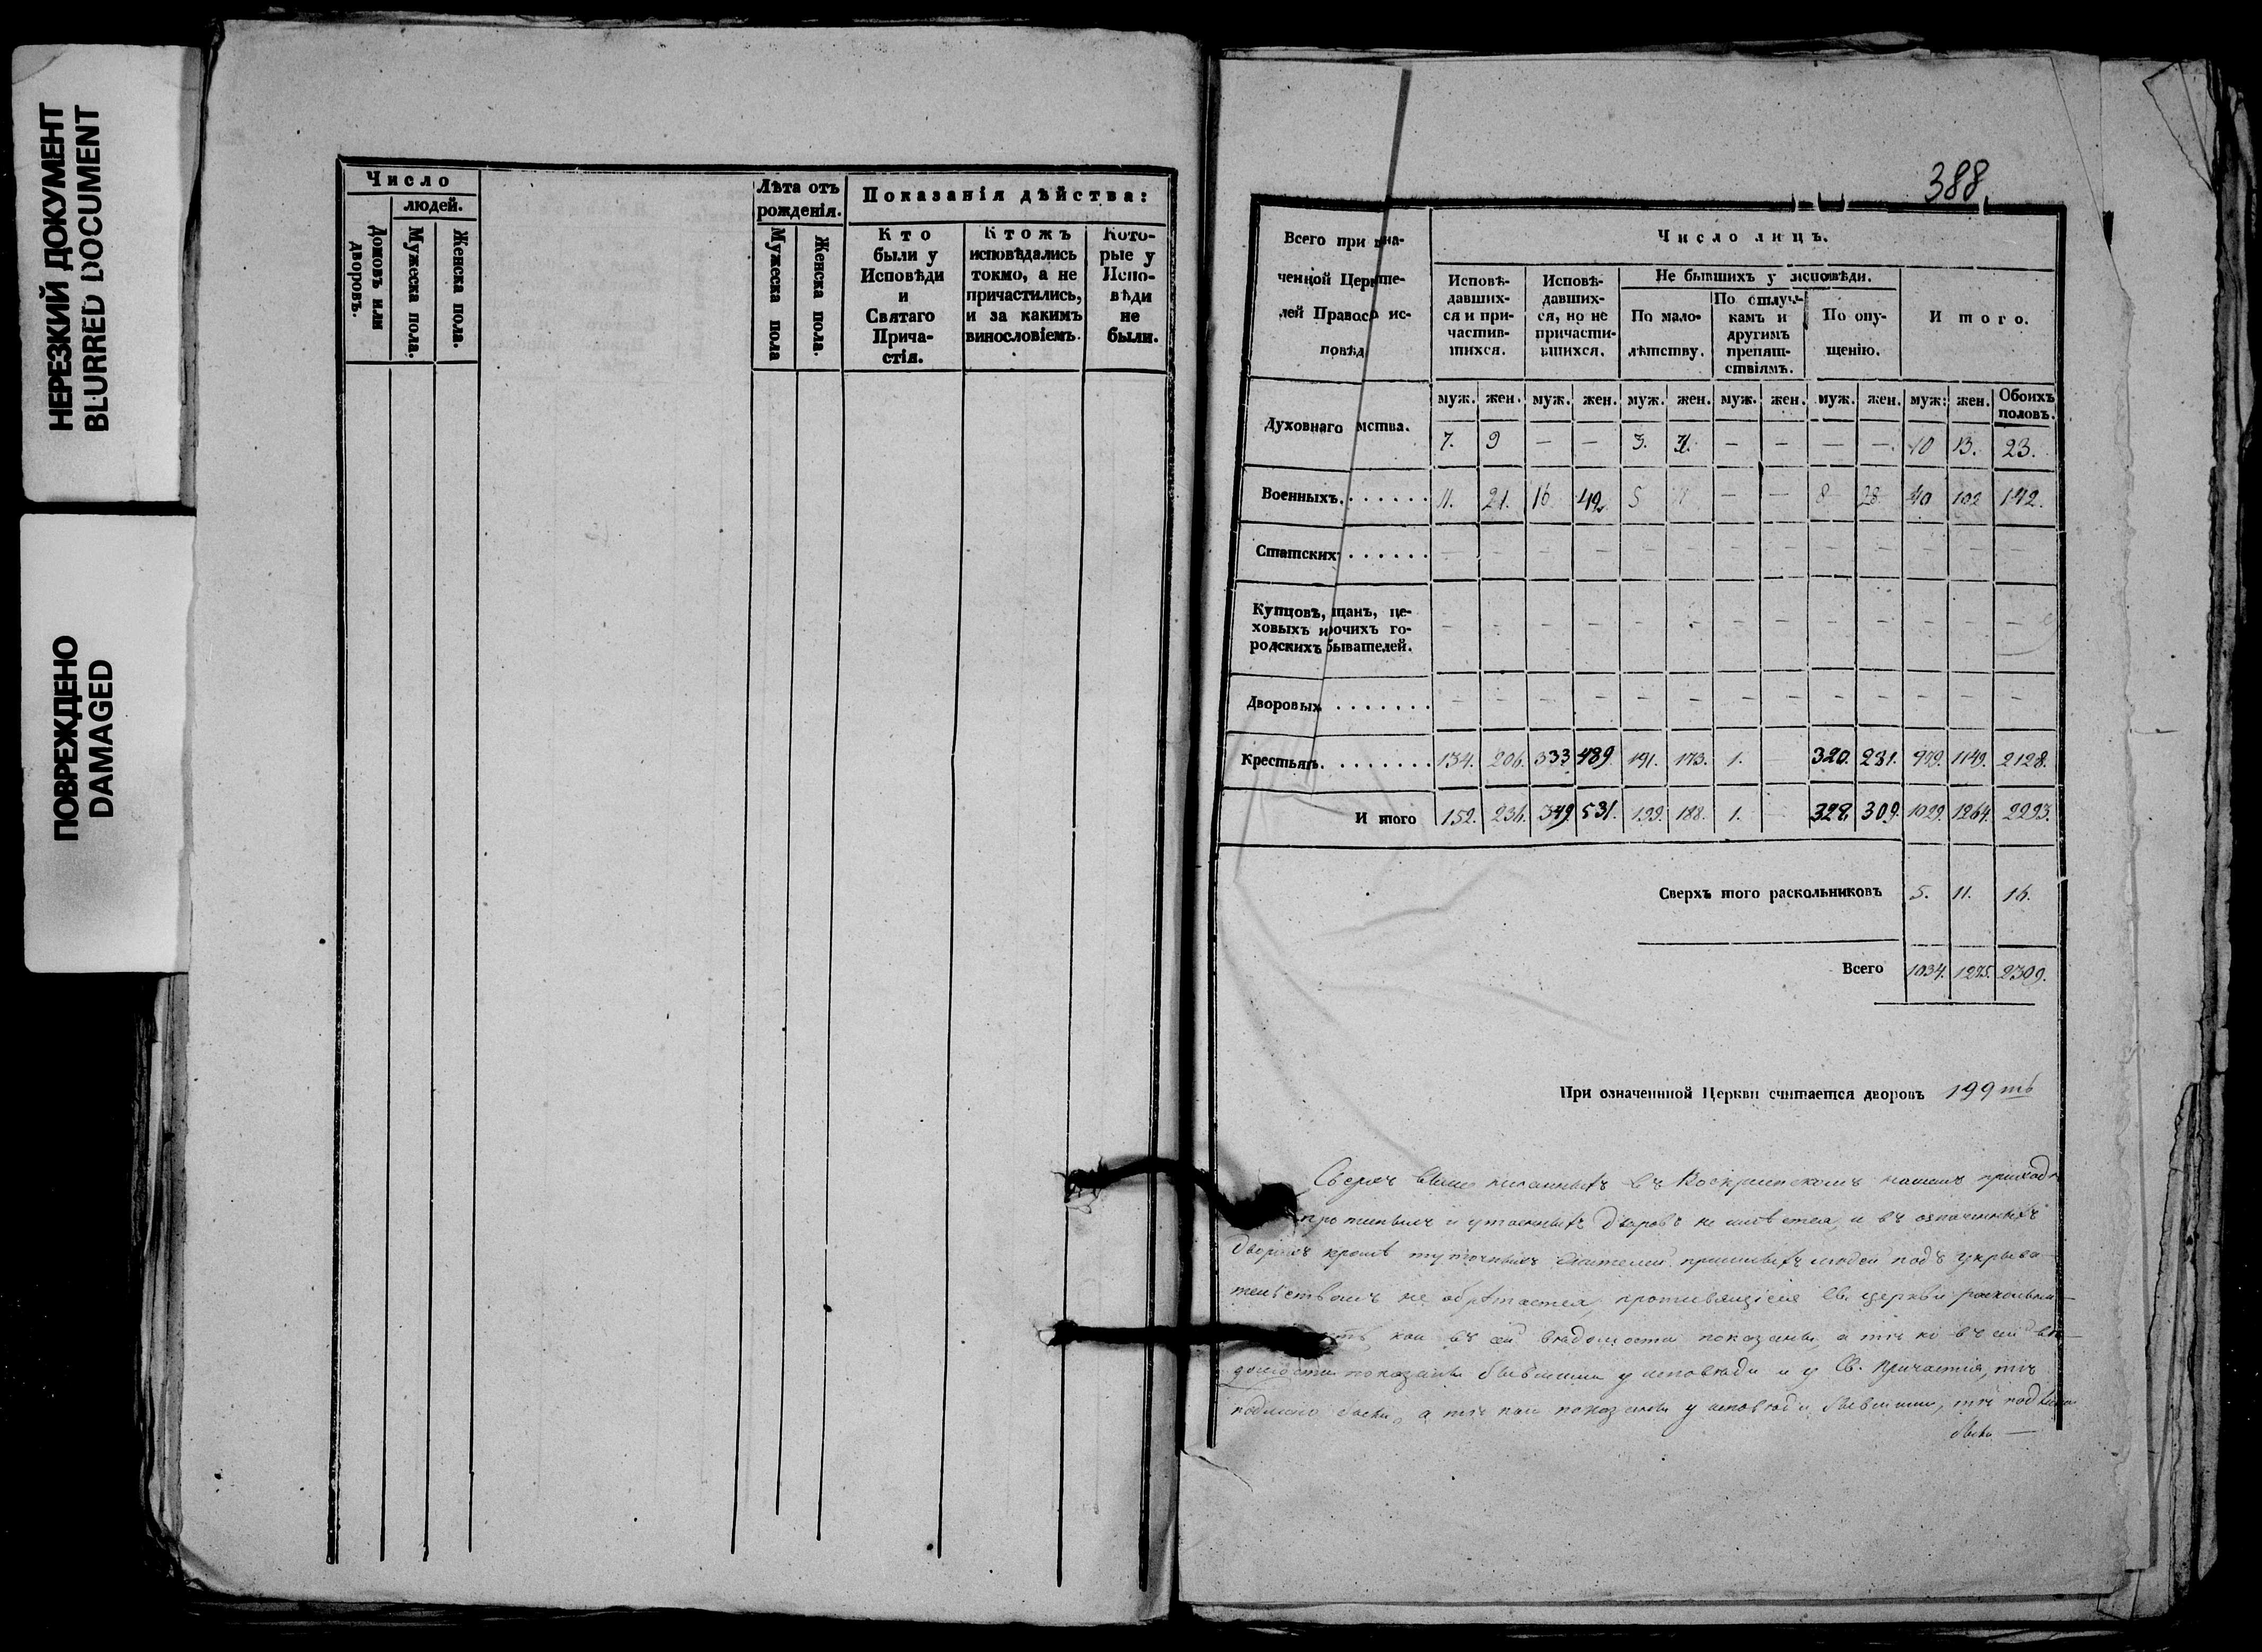 НЕРЕЗКИЙ ДОКУМЕНТ
BLURRED DOCUMENT
ПОВРЕЖДЕНО
DAMAGED
Число
людей.
Домовъ или дворовъ.
Мужеска пола.
Женска пола.
Лѣта отъ
рожденія.
Мужеска пола
Женска пола.
Показанія дѣйства:
Кто
были у
Исповѣди
и
Святаго
Прича-
стія.
Ктожъ
исповѣдались
токмо, а не
причастились,
и за какимъ
винословіемъ.
Кото-
рые у
Испо-
вѣди
не
были.
388.
Всего при зна-
ченной Цер те-
лей Правос ис-
повѣд
Число лицъ.
Исповѣ-
давших-
ся и при-
частив-
шихся.
Исповѣ-
давших-
ся, но не
причасти-
вшихся.
Не бывшихъ у исповѣди.
По мало-
лѣтству.
По отлуч-
камъ и
другимъ
препят-
ствіямъ.
По опу-
щенію.
Итого.
муж. жен. муж. жен. муж. жен. муж. жен. муж. жен. муж. жен. Обоихъ половъ.
Духовнаго мства. 7. 9 — — 3. 4. — — — — 10 13. 23.
Военныхъ. 11. 21. 16 42 5 11 — — 8 28. 40 102 142.
Статских — — — — — — — — — — — — —
Купцовъ, щанъ, це-
ховыхъ и рочихъ го-
родскихъ бывателей. — — — — — — — — — — — — —
Дворовых — — — — — — — — — — — — —
Крестьян. 134. 206. 333 489. 191. 173. 1. — 320. 281. 979. 1149. 2128.
И того 152. 236. 349. 531. 199. 188. 1. — 328. 309. 1029. 1264. 2293.
Сверхъ того раскольниковъ 5. 11. 16.
Всего 1034. 1275. 2309.
При означеннной Церкви считается дворовъ 199 ть
Сверхъ выше писанныхъ въ Воскресенскомъ нашемъ приходѣ
и утаенныхъ дворовъ не имѣется, и въ означенныхъ
дворахъ кромѣ туточныхъ жителей пришлыхъ людей подъ укрыва-
тельствомъ не обрѣтается, противящіеся Св. церкви раскольни-
въ сей вѣдомости показаны, а тѣ кои въ сей вѣ-
домости показаны бывшими у исповѣди и у Св. Причастія, тѣ
подлинно были, а тѣ кои показаны у исповѣди бывшими, тѣ подлинно
были —